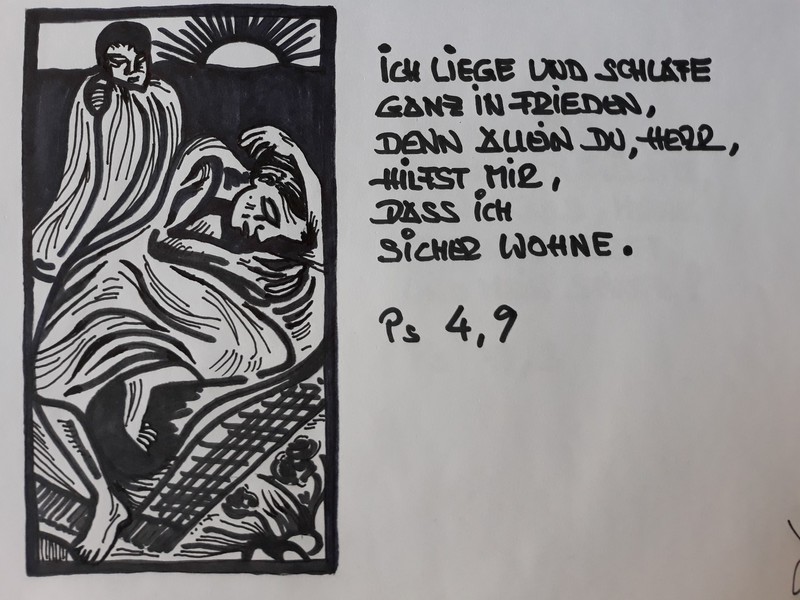 ICH LIEGE UND SCHLAFE
GANZ IN FRIEDEN,
DENN ALLEIN DU, HERR,
HILFST MIR,
DASS ICH
SICHER WOHNE.
Ps 4,9